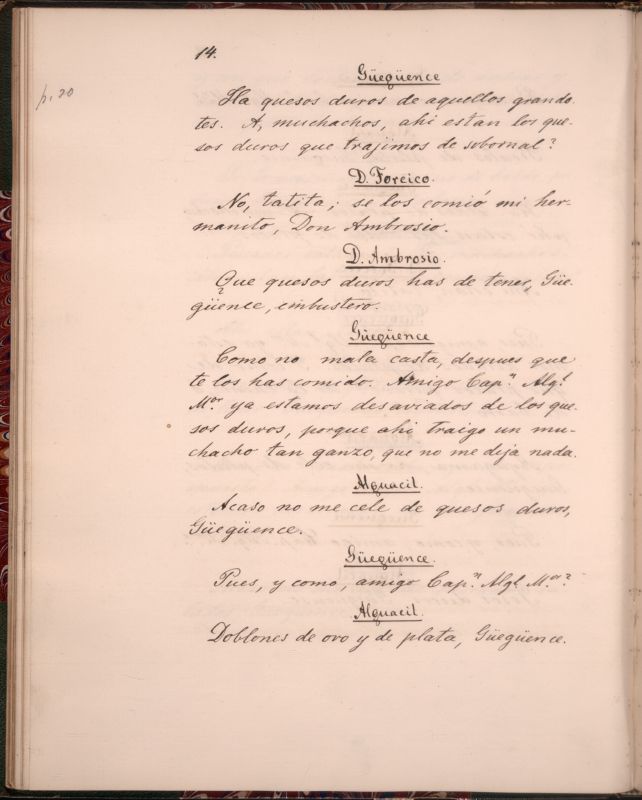 14.
p. 20
Güegüence
Ha quesos duros de aquellos grando-
tes. A, muchachos, ahi estan los que-
sos duros que trajimos de sobornal?
D. Forcico.
No, tatita; se los comió mi her-
manito, Don Ambrosio.
D. Ambrosio.
Que quesos duros has de tener, Güe-
güence, embustero.
Güegüence
Como no mala casta, despues que
te los has comido. Amigo Capn. Algl
Mor ya estamos desaviados de los que-
sos duros, porque ahi traigo un mu-
chacho tan ganzo, que no me dija nada.
Alguacil.
Acaso no me cele de quesos duros,
Güegüence.
Güegüence.
Pues, y como, amigo Capn Algl Mor?
Alguacil.
Doblones de oro y de plata, Güegüence.